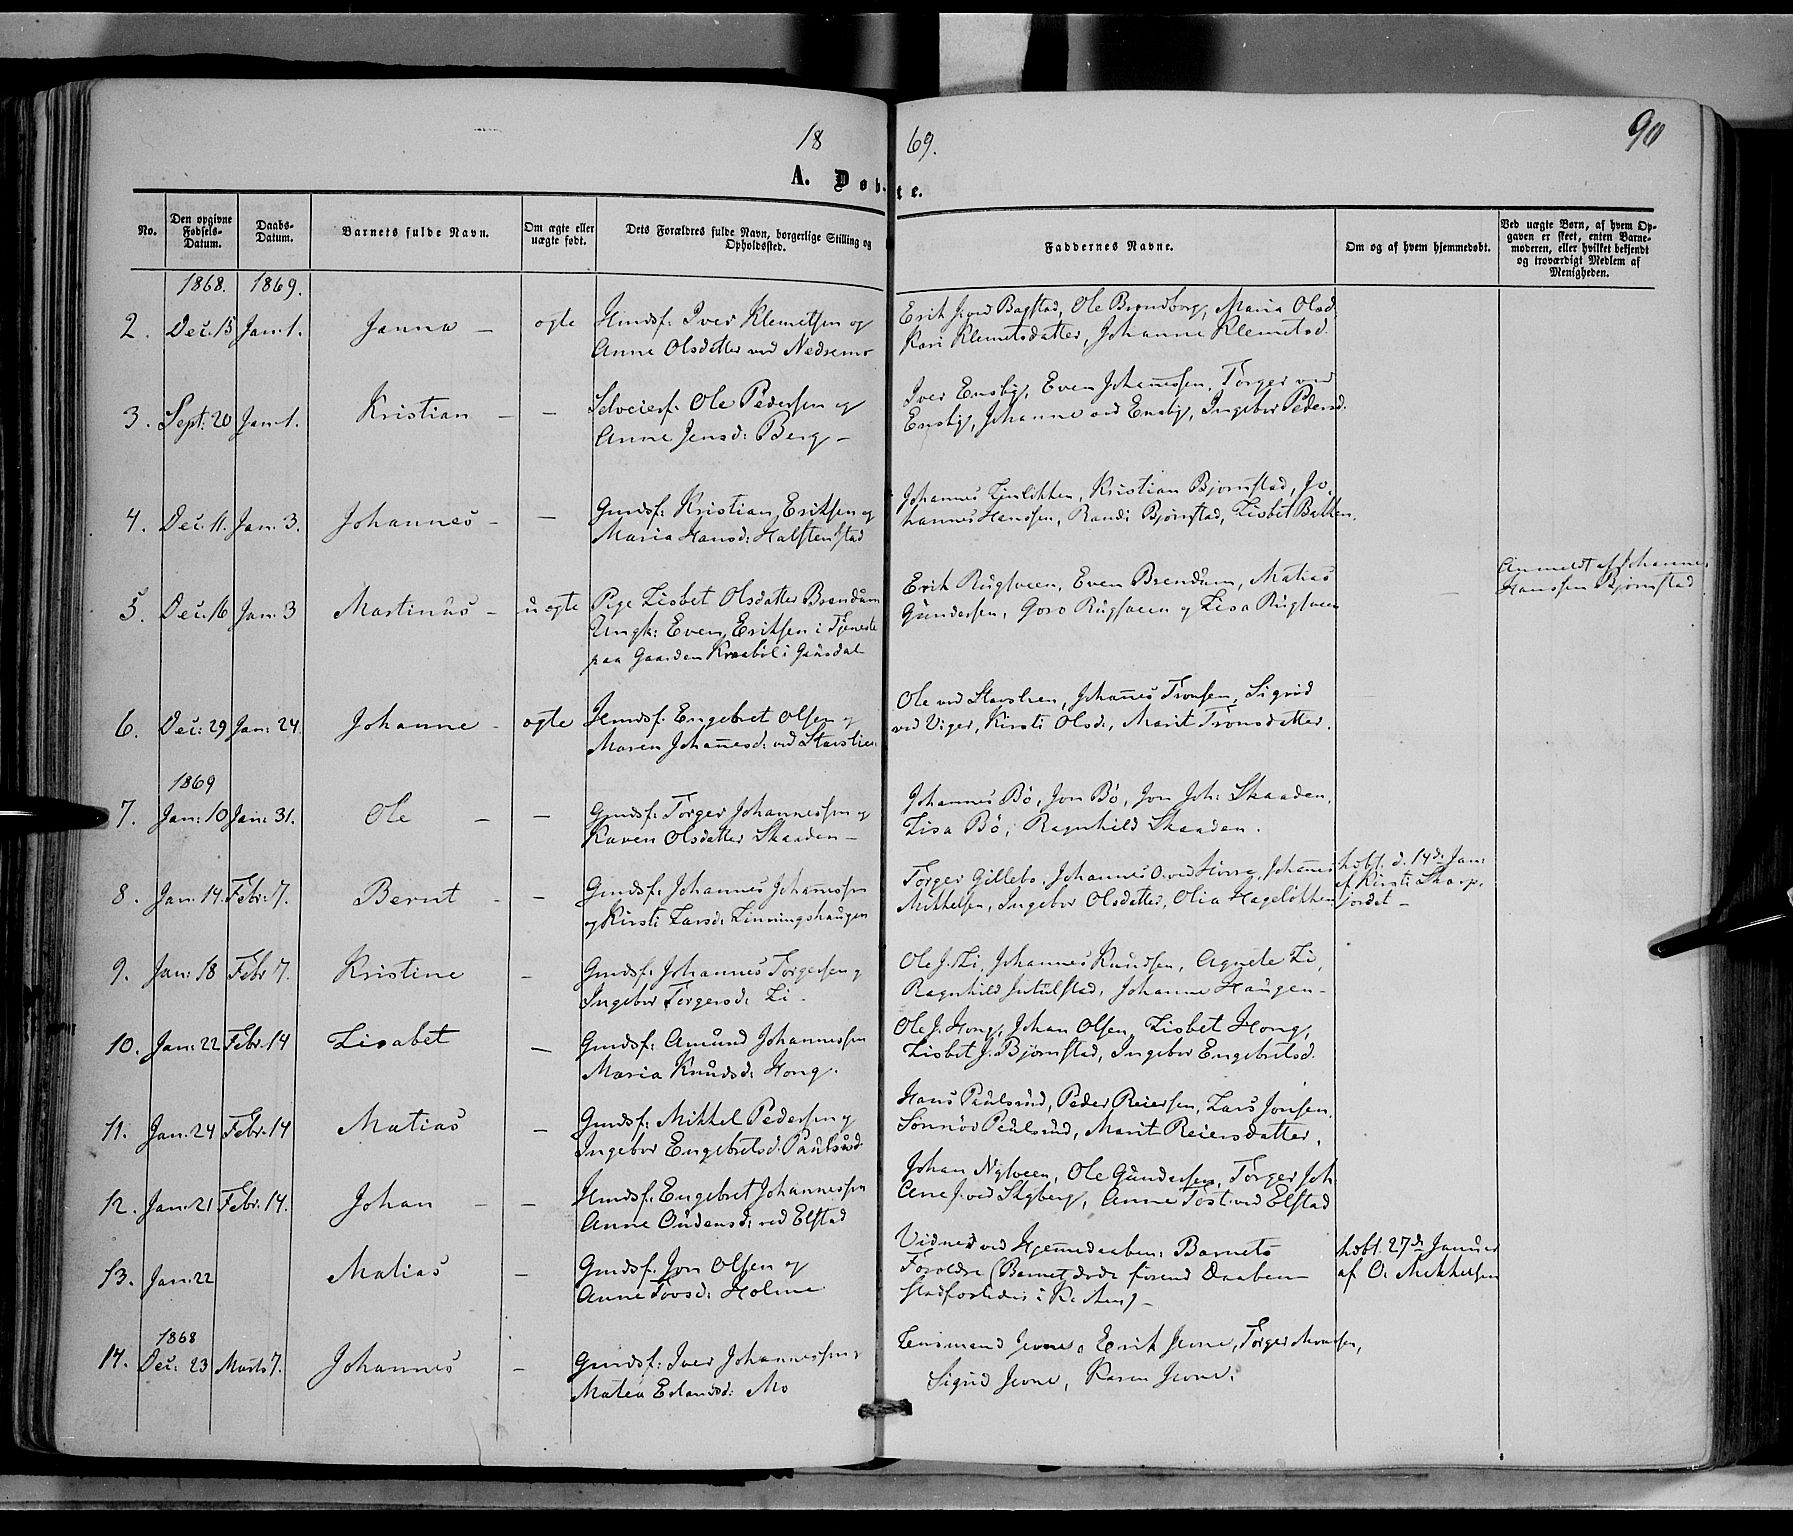 1869.
90
A. Døbte.
No.
Den opgivne Fødsels-Datum.
Daabs-Datum.
Barnets fulde Navn.
Om ægte eller uægte født.
Dets Forældres fulde Navn, borgerlige Stilling og Opholdssted.
Faddernes Navne.
Om og af hvem hjemmedøbt.
Ved uægte Børn, af hvem Opgaven er skeet, enten Barnemoderen, eller hvilket bekjendt og troværdigt Medlem af Menigheden.
1868. 1869.
2. Dec. 15 Jan. 1. Janna – ogte Husmf: Iver Klemetsen og
Anne Olsdatter ved Nedremo
Erik J. ved Bagstad, Ole Brandborg, Maria Olsd.
Kari Klemetsdatter, Johanne Klemetsd.
3. Sept. 20 Jan. 1. Kristian – – Selveierf: Ole Pedersen og
Anne Jensd: Berg –
Iver Ensby, Even Johannesen, Torger ved
Ensby, Johanne ved Ensby, Ingebor Pedersd.
4. Dec. 11. Jan. 3. Johannes – – Gmdsf: Kristian Eriksen og
Maria Hansd: Halstenstad
Johannes Kristian Bjørnstad, Jo-
hannes Hanssen, Randi Bjørnstad, Lisbet Bakken.
5. Dec. 16 Jan. 3 Martinus – uogte Pige Lisbet Olsdatter Brendum
Ungk: Even Eriksen i Tjeneste
paa Gaarden Kraabøl i Gausdal
Erik Rugsveen, Even Brendum, Matias
Gundersen, Goro Rugsveen og Lisa Rugsveen
–
Anmeldt af Johannes
Hanssen Bjørnstad
6. Dec: 29 Jan: 24. Johanne – ogte Husmf: Engebret Olsen og
Maren Johannesd: ved Stavslien
Ole ved Stavslien, Johannes Tronsen, Sigrid
ved Viger, Kirsti Olsd:, Marit Tronsdatter.
1869
7. Jan: 10 Jan: 31. Ole – – Gmdsf: Torger Johannessen og
Karen Olsdatter Skaaden –
Johannes Bø, Jon Bø, Jon Joh: Skaaden,
Lisa Bø, Ragnhild Skaaden.
8. Jan: 14. Febr: 7. Bernt – – Gmdsf: Johannes Johannessen
og Kirsti Larsd: Linningshaugen
Torger Gillebo, Johannes O. ved Johannes
Mikkelsen, Ingebor Olsdatter, Olia Hageløkken
hdbt. d. 14d: Jan:
af Kirsti Skarp-
jordet –
9. Jan: 18 Febr 7. Kristine – Gmdsf: Johannes Torgersen og
Ingebor Torgersd: Li –
Ole J. Li, Johannes Knudsen, Agnete Li,
Ragnhild Jutulstad, Johanne Haugen –
10. Jan: 22 Febr. 14 Lisabet – Gmdsf: Amund Johannessen
Maria Knudsd: Hong.
Ole J. Hong, Johan Olsen, Lisbet Hong,
Lisbet J. Bjørnstad, Ingebor Engebretsd.
11. Jan. 24 Febr. 14 Matias – Gmdsf: Mikkel Pedersen og
Ingebor Engebretsd: Paulsrud
Hans Paulsrud, Peder Reiersen, Lars Jonsen,
Sønnøv Paulsrud, Marit Reiersdatter.
12. Jan. 21 Febr. 14. Johan – – Husmf: Engebret Johannessen
Anne Audensd: ved Elstad
Johan Nysveen, Ole Gundersen, Torger Joh
J. ved Skyberg, Anne Tøst: ved Elstad
13. Jan. 22 Matias – Gmdsf: Jon Olsen og
Anne Tovsd: Holme
Vidner ved Hjemmedaaben: Barnets
Foreldre (Barnet døde førend Daaben
stadfæstedes i Kirken) –
hdbt. 27d: Januar
af O. Mikkelsen
1868
14. Dec: 23 Marts 7. Johannes – Gmdsf: Iver Johannessen og
Matea Erlandsd: Mo
Lensmand Jevne, Erik Jevne, Torger
Sigrid Jevne, Karen Jevne.